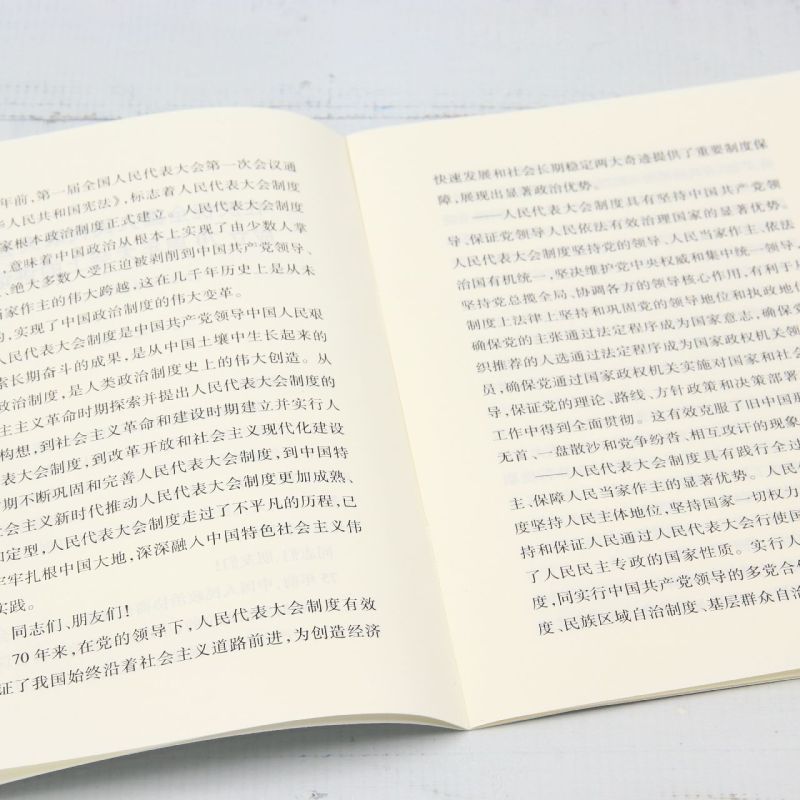 年前，第一届全国人民代表大会第一次会议通
人民共和国宪法》，标志着人民代表大会制度
家根本政治制度正式建立。人民代表大会制度
，意味着中国政治从根本上实现了由少数人掌
、绝大多数人受压迫被剥削到中国共产党领导、
当家作主的伟大跨越，这在几千年历史上是从未
的，实现了中国政治制度的伟大变革。
人民代表大会制度是中国共产党领导中国人民艰
索长期奋斗的成果，是从中国土壤中生长起来的
政治制度，是人类政治制度史上的伟大创造。从
主主义革命时期探索并提出人民代表大会制度的
构想，到社会主义革命和建设时期建立并实行人
表大会制度，到改革开放和社会主义现代化建设
期不断巩固和完善人民代表大会制度，到中国特
社会主义新时代推动人民代表大会制度更加成熟、
定型，人民代表大会制度走过了不平凡的历程，已
牢扎根中国大地，深深融入中国特色社会主义伟
实践。
同志们、朋友们！
70年来，在党的领导下，人民代表大会制度有效
证了我国始终沿着社会主义道路前进，为创造经济
快速发展和社会长期稳定两大奇迹提供了重要制度保
障，展现出显著政治优势。
——人民代表大会制度具有坚持中国共产党领
导、保证党领导人民依法有效治理国家的显著优势。
人民代表大会制度坚持党的领导、人民当家作主、依法
治国有机统一，坚决维护党中央权威和集中统一领导，
坚持党总揽全局、协调各方的领导核心作用，有利于从
制度上法律上坚持和巩固党的领导地位和执政地位
确保党的主张通过法定程序成为国家意志，确保党
织推荐的人选通过法定程序成为国家政权机关领
员，确保党通过国家政权机关实施对国家和社会
导，保证党的理论、路线、方针政策和决策部署
工作中得到全面贯彻。这有效克服了旧中国
无首、一盘散沙和党争纷沓、相互攻讦的现象
——人民代表大会制度具有践行全过
主、保障人民当家作主的显著优势。人民
度坚持人民主体地位，坚持国家一切权力
持和保证人民通过人民代表大会行使国
了人民民主专政的国家性质。实行人
度，同实行中国共产党领导的多党合作
度、民族区域自治制度、基层群众自治